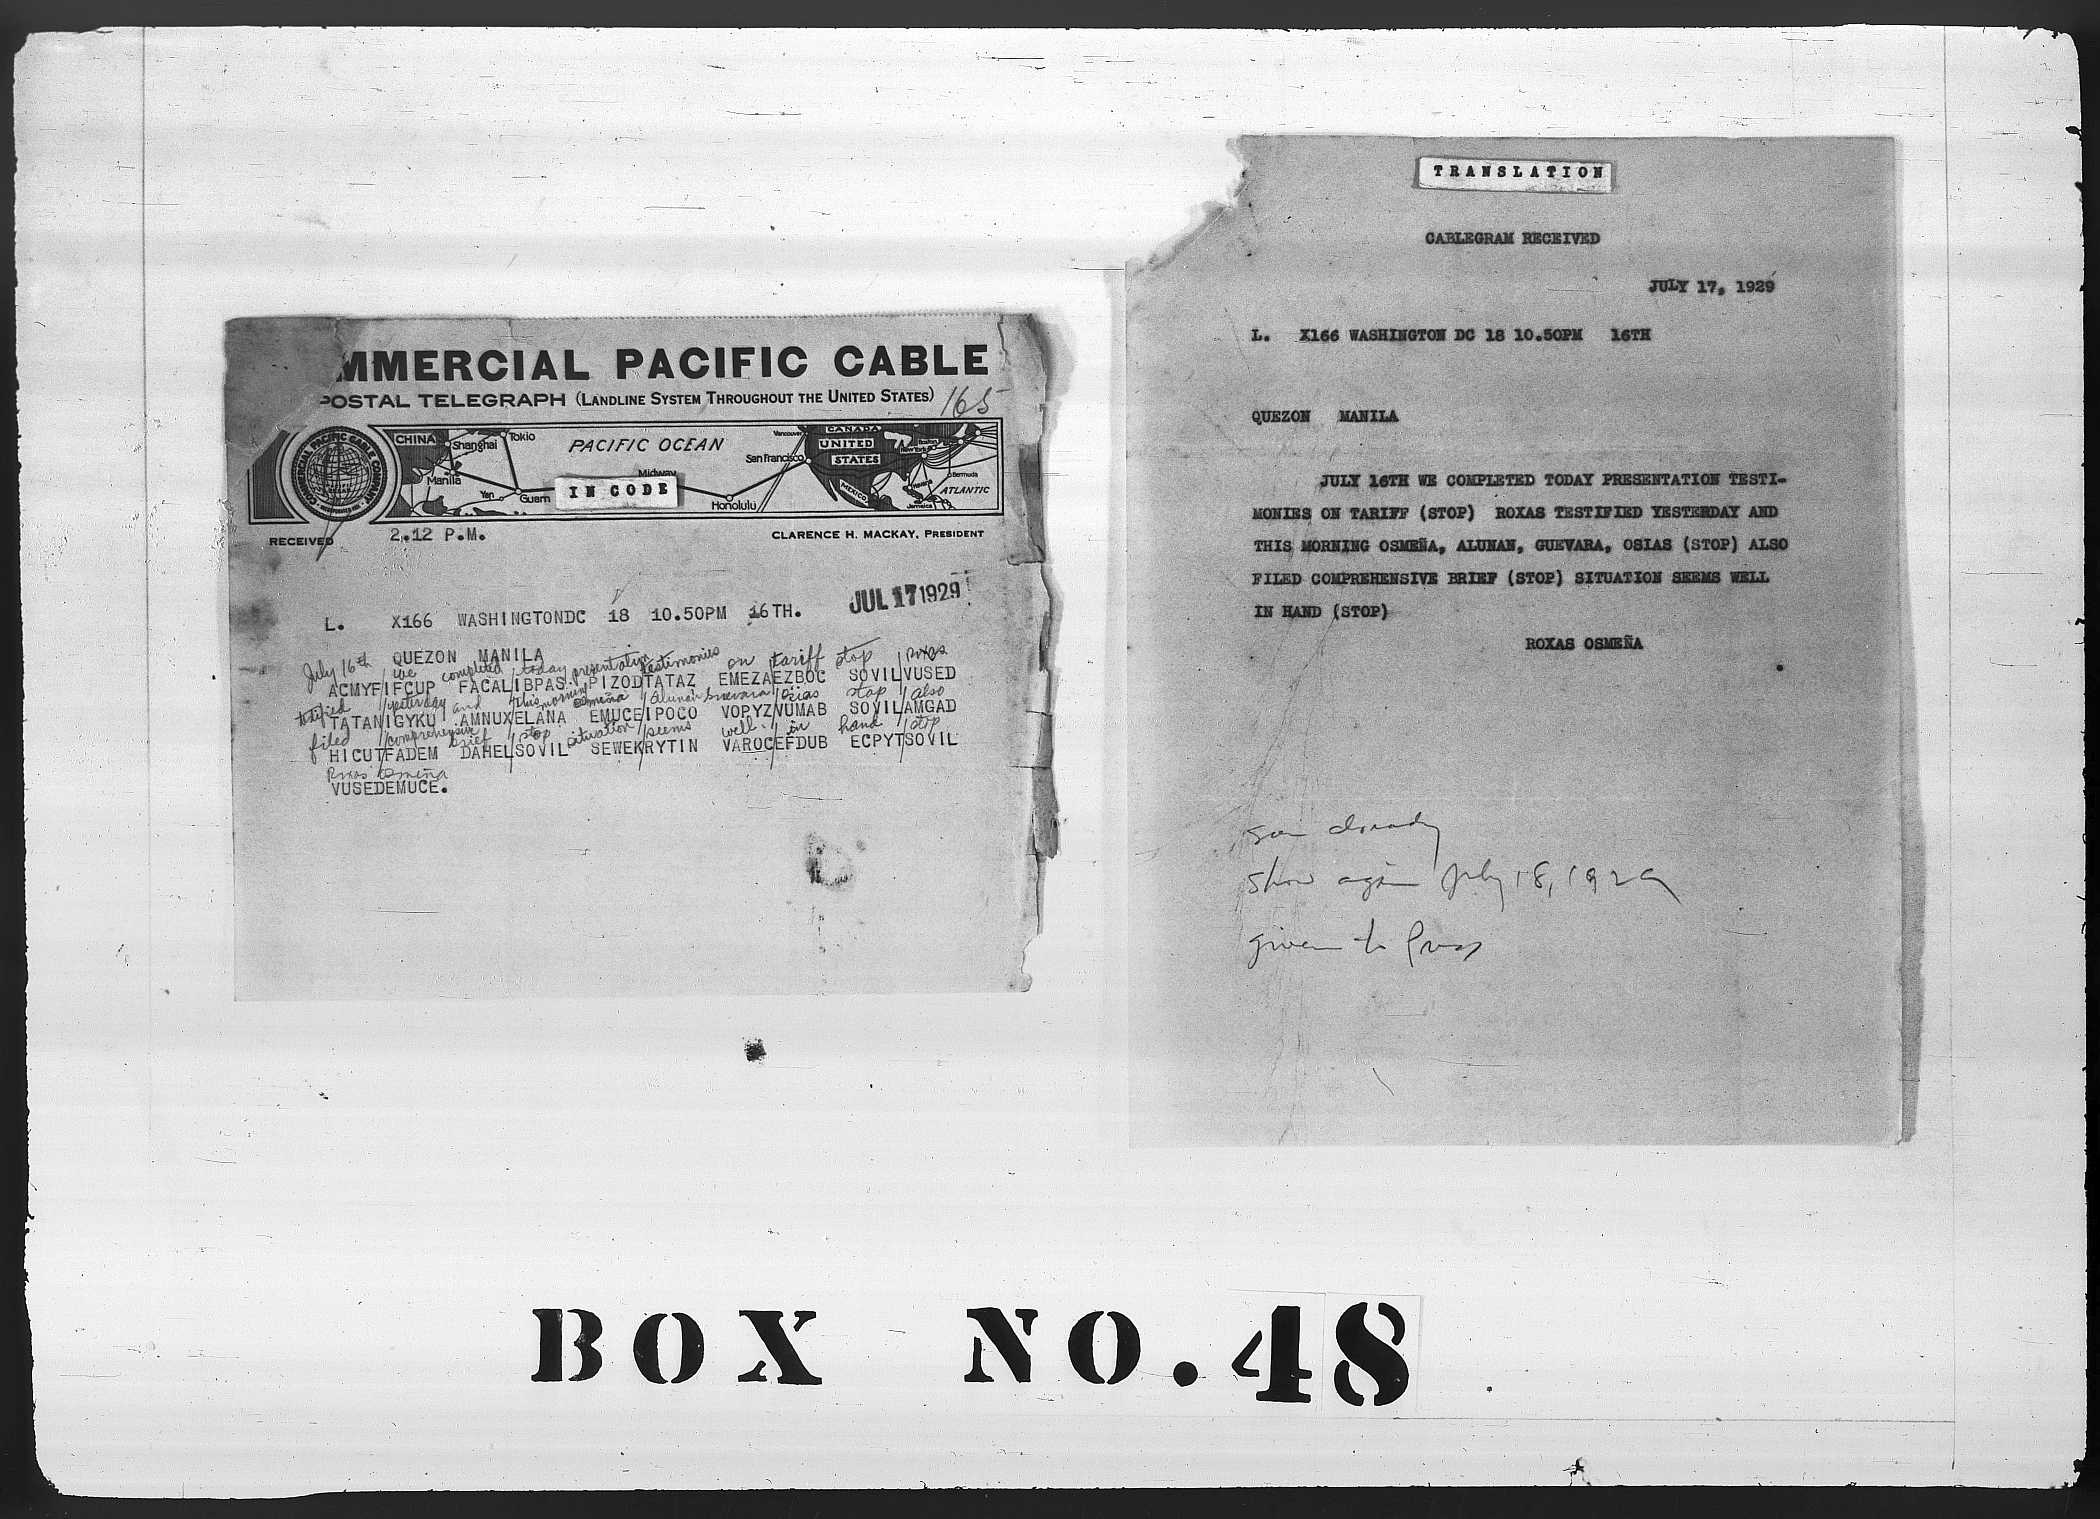 MMERCIAL PACIFIC CABLE
POSTAL TELEGRAPH (LANDLINE SYSTEM THROUGHOUT THE UNITED STATES)
165
COMMERCIAL PACIFIC CABLE COMPANY
INCORPORATED 1901
CHINA
Shanghai
Tokio
PACIFIC OCEAN
Vancouver
CANADA
UNITED
STATES
San Francisco
Boston
New York
Bermuda
Manila
Yap
Guam
Midway
IN CODE
Honolulu
MEXICO
Havana
Jamaica
ATLANTIC
RECEIVED
2.12 P.M.
CLARENCE H. MACKAY, PRESIDENT
JUL 17 1929
L. X166 WASHINGTONDC 18 10.50PM 16TH.
QUEZON MANILA
July 16th we completed today presentation testimonies on tariff stop Roxas
ACMYFIFCUP FACALIBPAS PIZODTATAZ EMEZAEZBOC SOVILVUSED
testified yesterday and this morning Osmeña Alunan Guevara Osias stop also
TATANIGYKU AMNUXELANA EMUCEIPOCO VOPYZVUMAB SOVILAMGAD
filed comprehensive brief stop situation seems well in hand stop
HICUTFADEM DAHELSOVIL SEWEKRYTIN VAROCEFDUB ECPYTSOVIL
Roxas Osmeña
VUSEDEMUCE.
TRANSLATION
CABLEGRAM RECEIVED
JULY 17, 1929
L. X166 WASHINGTON DC 18 10.50PM 16TH
QUEZON MANILA
JULY 16TH WE COMPLETED TODAY PRESENTATION TESTI-
MONIES ON TARIFF (STOP) ROXAS TESTIFIED YESTERDAY AND
THIS MORNING OSMEÑA, ALUNAN, GUEVARA, OSIAS (STOP) ALSO
FILED COMPREHENSIVE BRIEF (STOP) SITUATION SEEMS WELL
IN HAND (STOP)
ROXAS OSMEÑA
already
show again July 18, 1929
given to Press
BOX NO. 48